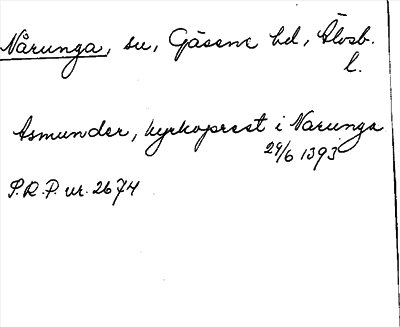 Nårunga, sn, Gäsene hd, Älvsb.
l.
Asmunder, kyrkoprest i Narunga
29/6 1393
S.R.P. nr. 2674